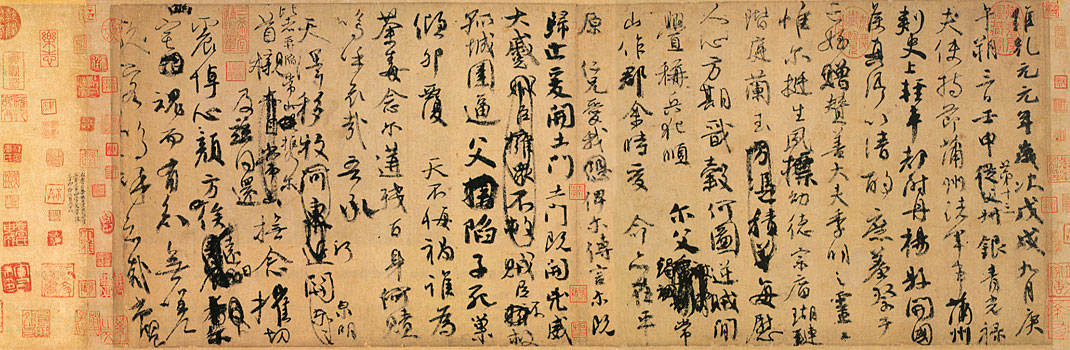 維乾元元年歲次戊戌九月庚
午朔三日壬申第十三叔銀青光祿
夫使持節蒲州諸軍事蒲州
刺史上輕車都尉丹楊縣開國
侯真卿以清酌庶羞祭于
亡姪贈贊善大夫季明之靈曰
惟爾挺生夙標幼德宗廟瑚璉
階庭蘭玉每慰
人心方期戩穀何圖逆賊閒
釁稱兵犯順爾父竭誠常
山作郡余時受命亦在平
原仁兄愛我俾爾傳言爾既
歸止爰開土門土門既開凶威
大蹙賊臣不救
孤城圍逼父陷子死巢
傾卵覆天不悔禍誰為
荼毒念爾遘殘百身何贖
嗚乎哀哉吾承
天澤移牧河關泉明
比者再陷常山攜爾
首櫬及茲同還撫念摧切
震悼心顏方俟遠日
幽宅魂而有知無嗟
久客嗚呼哀哉尚饗